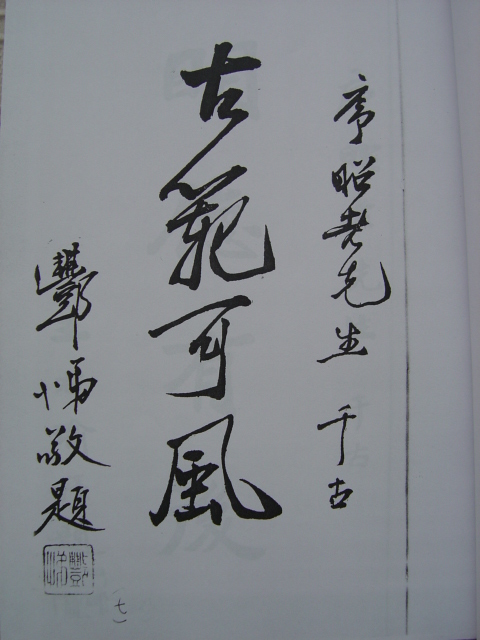 昭老先生 千古
古範可風
酆悌敬題
(七)